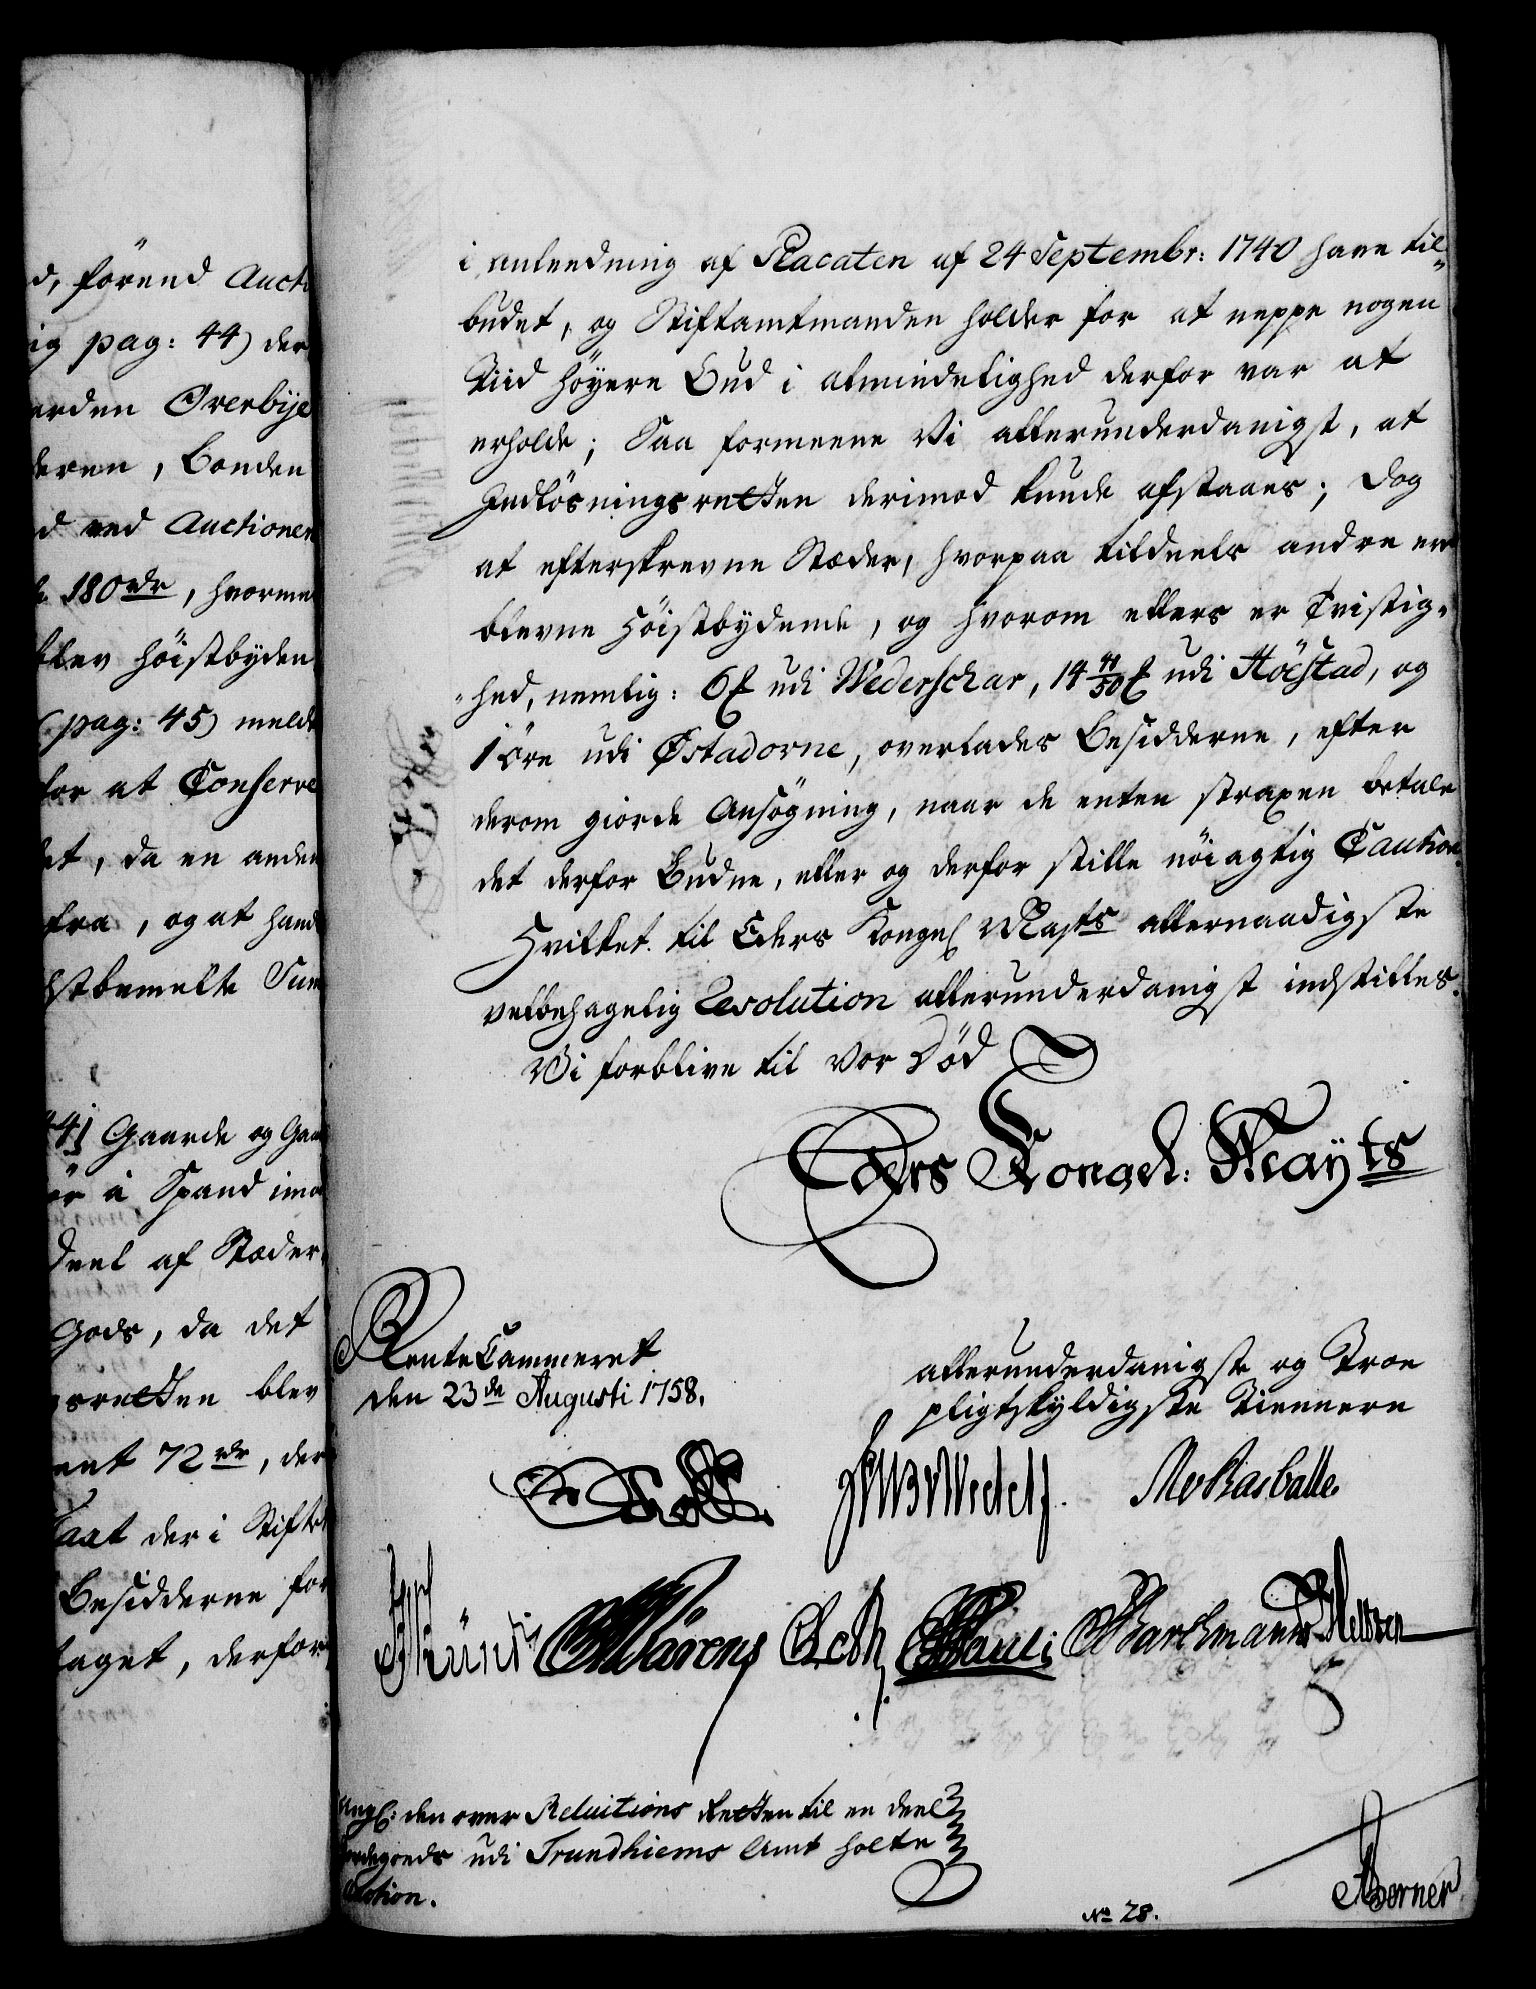 d, förend Aucti
ig pag: 44) der
erden Overbÿe
deren, Bonden
d ved Auctionen
180 rdr, hvorme
blev höistbyden
(pag: 45) melde
for at Conserve
et, da en anden
fra, og at hand
stbemelte Sum
44) Gaarde og Gaa
ör à Spand imo
Deel af Stæder
Gods, da det
gsretten blev
ent 72 rdr, der
taat der i Stift
Besidderne for
taget, derfor
i anleedning af Placaten af 24 Septembr: 1740 have til-
budet, og Stiftamtmanden holder for at neppe nogen
Tiid höyere Bud i almindelighed derfor var at
erholde; Saa formeene Vi allerunderdanigst, at
Indlösningsretten derimod kunde afstaaes; dog
at efterskrevne Stæder, hvorpaa tildeels andre ere
blevne Höistbydende, og hvorom ellers er Tvistig-
-hed, nemlig: 6 ℔ udi Wederschar, 14 41/50 ℔ udi Höestad, og
1 Öre udi Østadorne, overlades Besidderne, efter
derom giorde Ansögning, naar de enten straxen betale
det derfor Budne, eller og derfor stille nöiagtig Caution.
Hvilket til Eders Kongel Maj:ts allernaadigste
velbehagelig Resolution allerunderdanigst indstilles.
Vi forblive til Vor Död
Eders Kongel: Mayts
RenteCammeret
den 23de Augusti 1758.
allerunderdanigste og Troe
pligtskyldigste Tiennere
Holst
Wedel
Rasballe
Wärens
Pauli
Barchmann
Angl: den over Reluitions Retten til en deel
Jordegoeds udi Trundhiems Amt holte
Auction.
No 28.
Berner